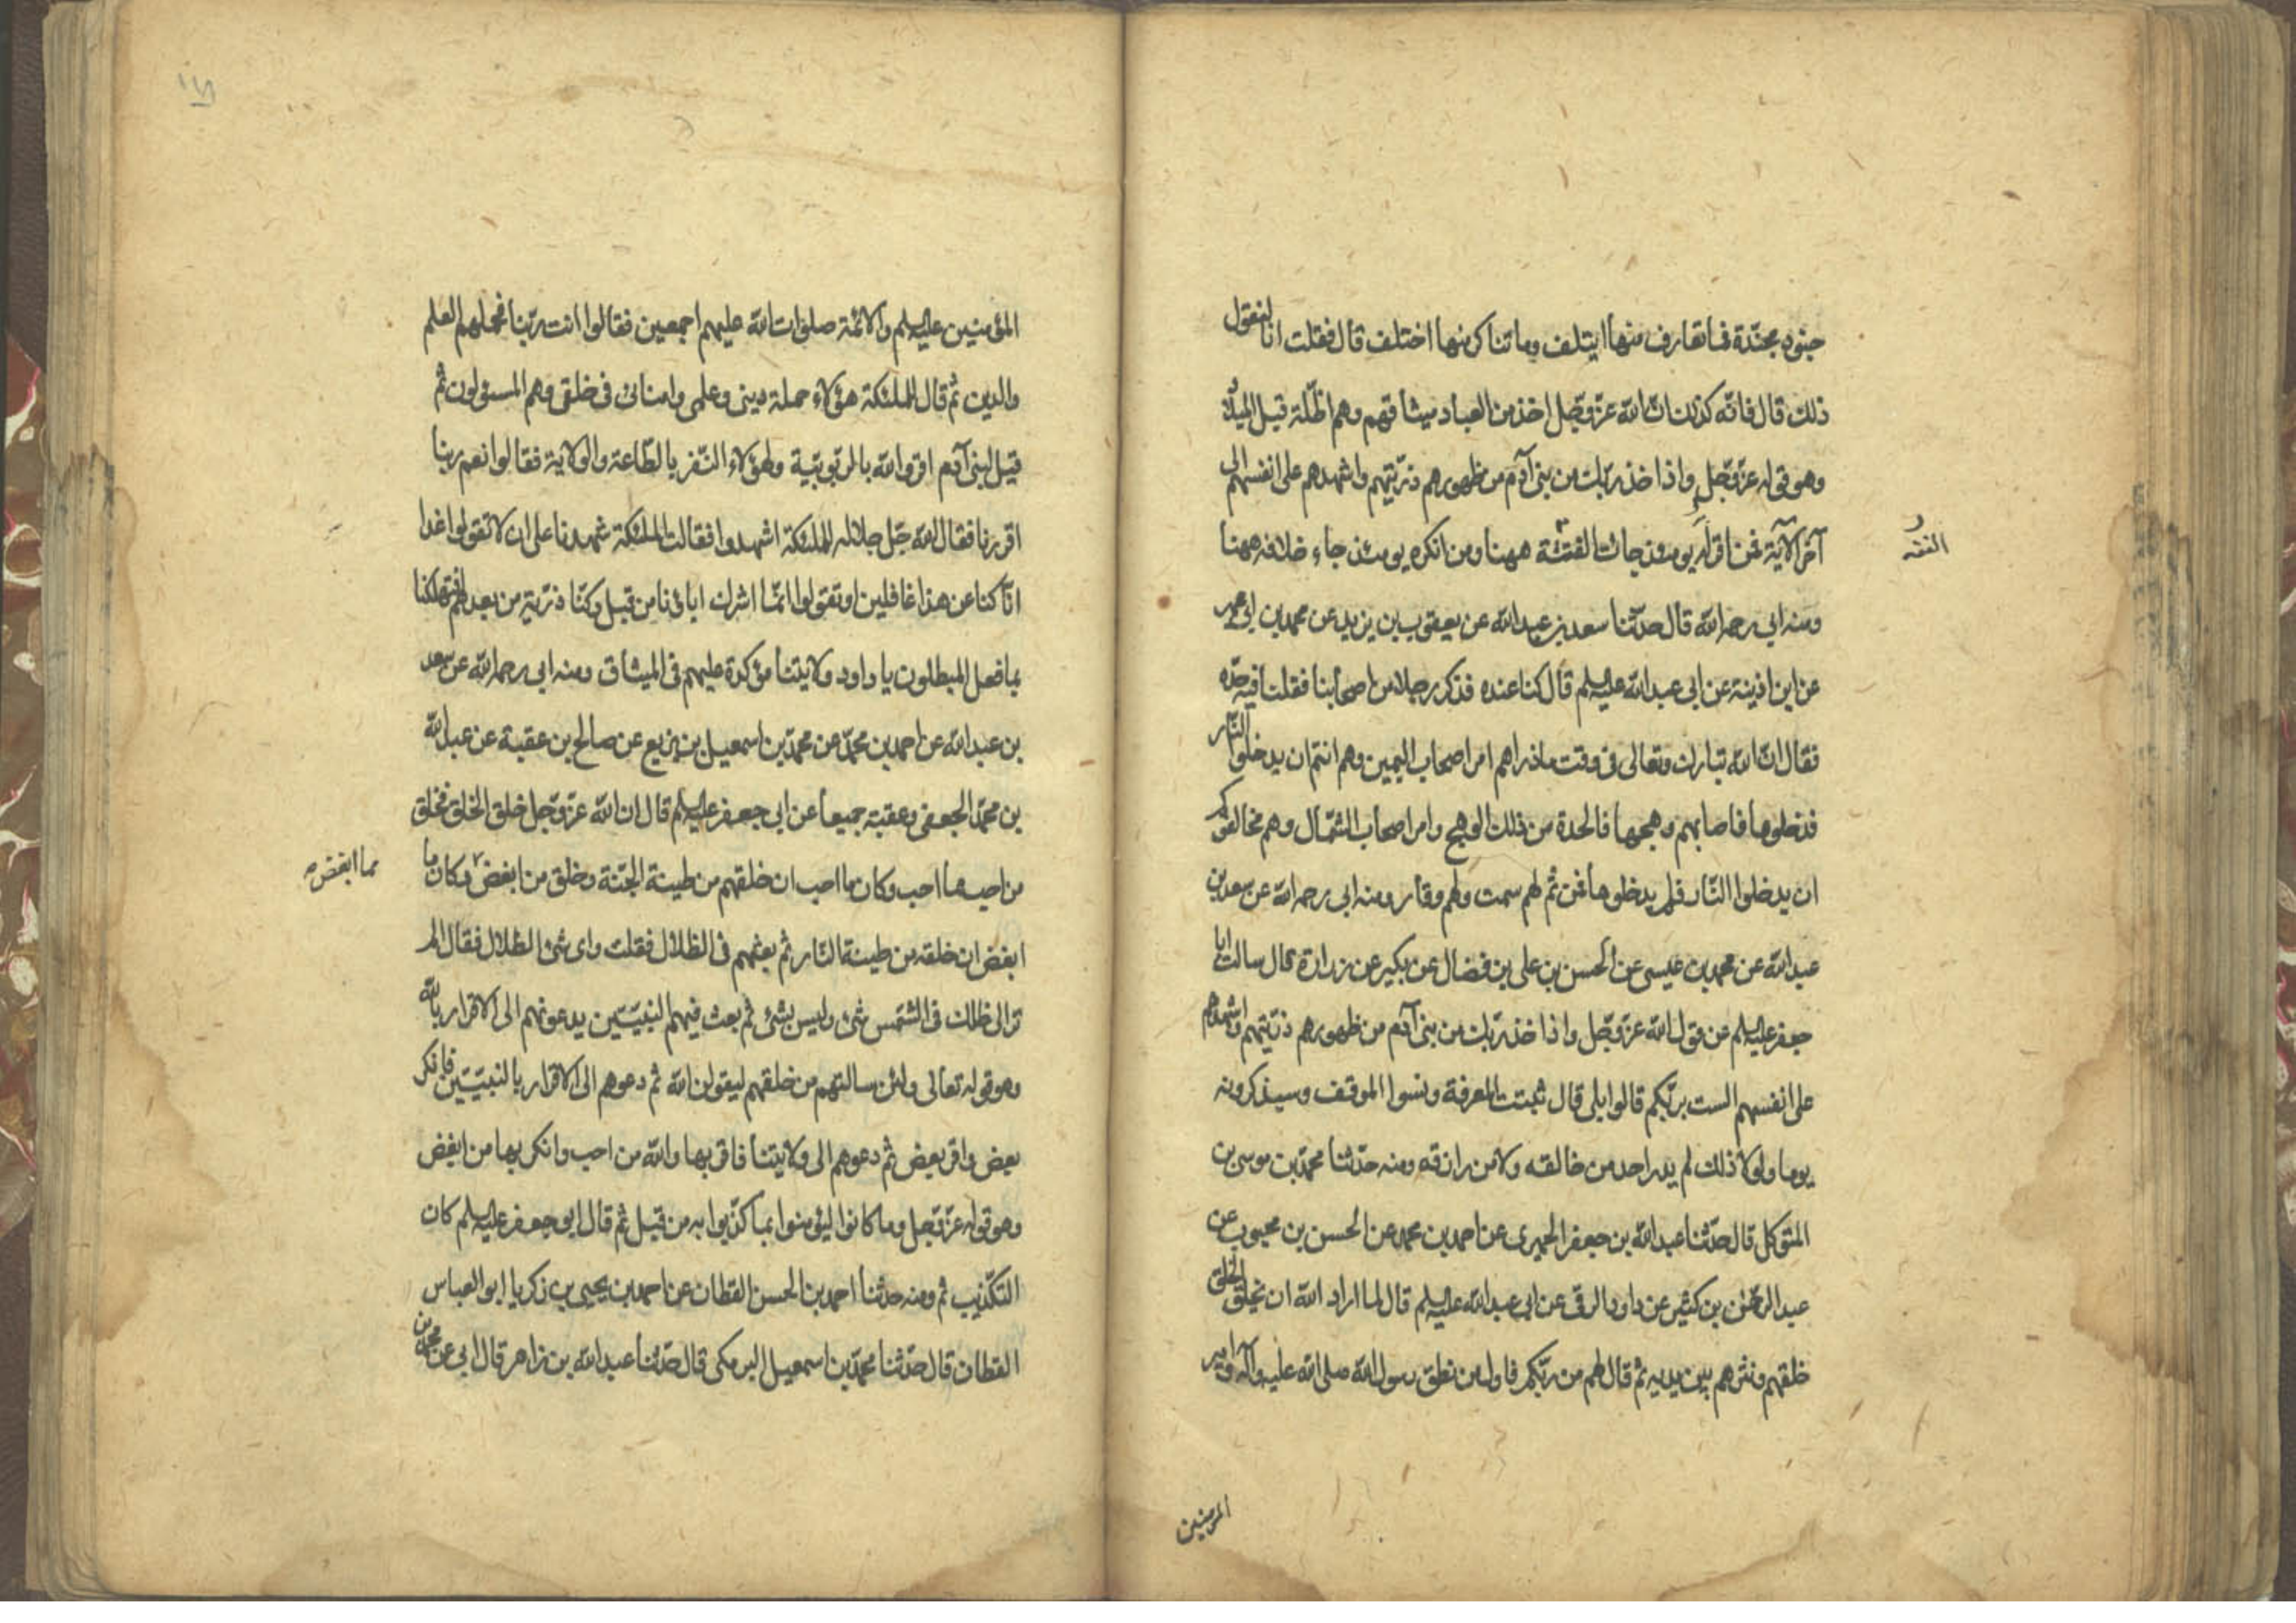 جنود مجندة فما تعارف منها ايتلف وما تناكر منها اختلف قال فقلت انا لنقول
ذلك قال فانه كذلك ان الله عز وجل اخذ من العباد ميثاقهم وهم اظلة قبل الميلاد
وهو قوله عز وجل واذا خذ ربك من بنى آدم من ظهورهم ذريتهم واشهدهم على انفسهم الى
آخر الآية فمن اقر له يومئذ جائت الفتثة ههنا ومن انكره يومئذ جاء خلافه ههنا
الفته
ومنه ابى رحمه الله قال حدثنا سعد بن عبدالله عن يعقوب بن يزيد عن محمد بن ابى عمير
عن ابن اذينة عن ابى عبدالله عليه السلم قال كنا عنده فذكر رجلا من اصحابنا فقلت فيه حده
فقال ان الله تبارك وتعالى فى وقت ماذراهم امر اصحاب اليمين وهم انتم ان يدخلوا النار
فدخلوها فاصابهم وهجها فالحدة من ذلك الوهج وامر اصحاب الشمال وهم مخالفوكم
ان يدخلوا النار فلم يدخلوها فمن ثم لهم سمت ولهم وقار ومنه ابى رحمه الله عن سعد بن
عبدالله عن محمد بن عيسى عن الحسن بن على بن فضال عن بكير عن زرارة قال سالت ابا
جعفر عليه السلم عن قول الله عز وجل واذا خذ ربك من بنى آدم من ظهورهم ذريتهم واشهدهم
على انفسهم الست بربكم قالوا بلى قال ثبتت المعرفة ونسوا الموقف وسيذكرونه
يوما ولولا ذلك لم يدر احد من خالقه ولا من رازقه ومنه حدثنا محمد بن موسى بن
المتوكل قال حدثنا عبدالله بن جعفر الحميرى عن احمد بن محمد عن الحسن بن محبوب عن
عبد الرحمن بن كثير عن داود الرقى عن ابى عبدالله عليه السلم قال لما اراد الله ان يخلق الخلق
خلقهم ونثرهم بين يديه ثم قال لهم من ربكم فاول من نطق رسول الله صلى الله عليه وآله وامير
المؤمنين
المؤمنين عليه السلم والائمة صلوات الله عليهم اجمعين فقالوا انت ربنا فحملهم العلم
والدين ثم قال للملئكة هؤلاء حملة دينى وعلمى وامنائى فى خلقى وهم المسئولون ثم
قيل لبنى آدم اقروا لله بالربوبية ولهؤلاء النفر بالطاعة والولاية فقالوا نعم ربنا
اقررنا فقال الله جل جلاله للملئكة اشهدوا فقالت الملئكة شهدنا على ان لا تقولوا غدا
انا كنا عن هذا غافلين او تقولوا انما اشرك ابائنا من قبل وكنا ذرية من بعدهم افتهلكنا
بما فعل المبطلون يا داود ولايتنا مؤكدة عليهم فى الميثاق ومنه ابى رحمه الله عن سعد
بن عبدالله عن احمد بن محمد عن محمد بن اسمعيل بن بزيع عن صالح بن عقبة عن عبدالله
بن محمد الجعفى وعقبة جميعا عن ابى جعفر عليه السلم قال ان الله عز وجل خلق الخلق فخلق
من احب مما احب وكان ما احب ان خلقهم من طينة الجنة وخلق من ابغض وكان ما
مما ابغض صح
ابغض ان خلقه من طينة النار ثم بعثهم فى الظلال فقلت واى شئ الظلال فقال الم
تر الى ظلك فى الشمس شئ وليس بشئ ثم بعث فيهم النبيين يدعونهم الى الاقرار بالله
وهو قوله تعالى ولئن سالتهم من خلقهم ليقولن الله ثم دعوهم الى الاقرار بالنبيين فانكر
بعض واقر بعض ثم دعوهم الى ولايتنا فاقر بها والله من احب وانكر بها من ابغض
وهو قوله عز وجل وما كانوا ليؤمنوا بما كذبوا به من قبل ثم قال ابو جعفر عليه السلم كان
التكذيب ثم ومنه حدثنا احمد بن الحسن القطان عن احمد بن يحيى بن زكريا ابو العباس
القطان قال حدثنا محمد بن اسمعيل البرمكى قال حدثنا عبدالله بن زاهر قال ابى عن محمد بن